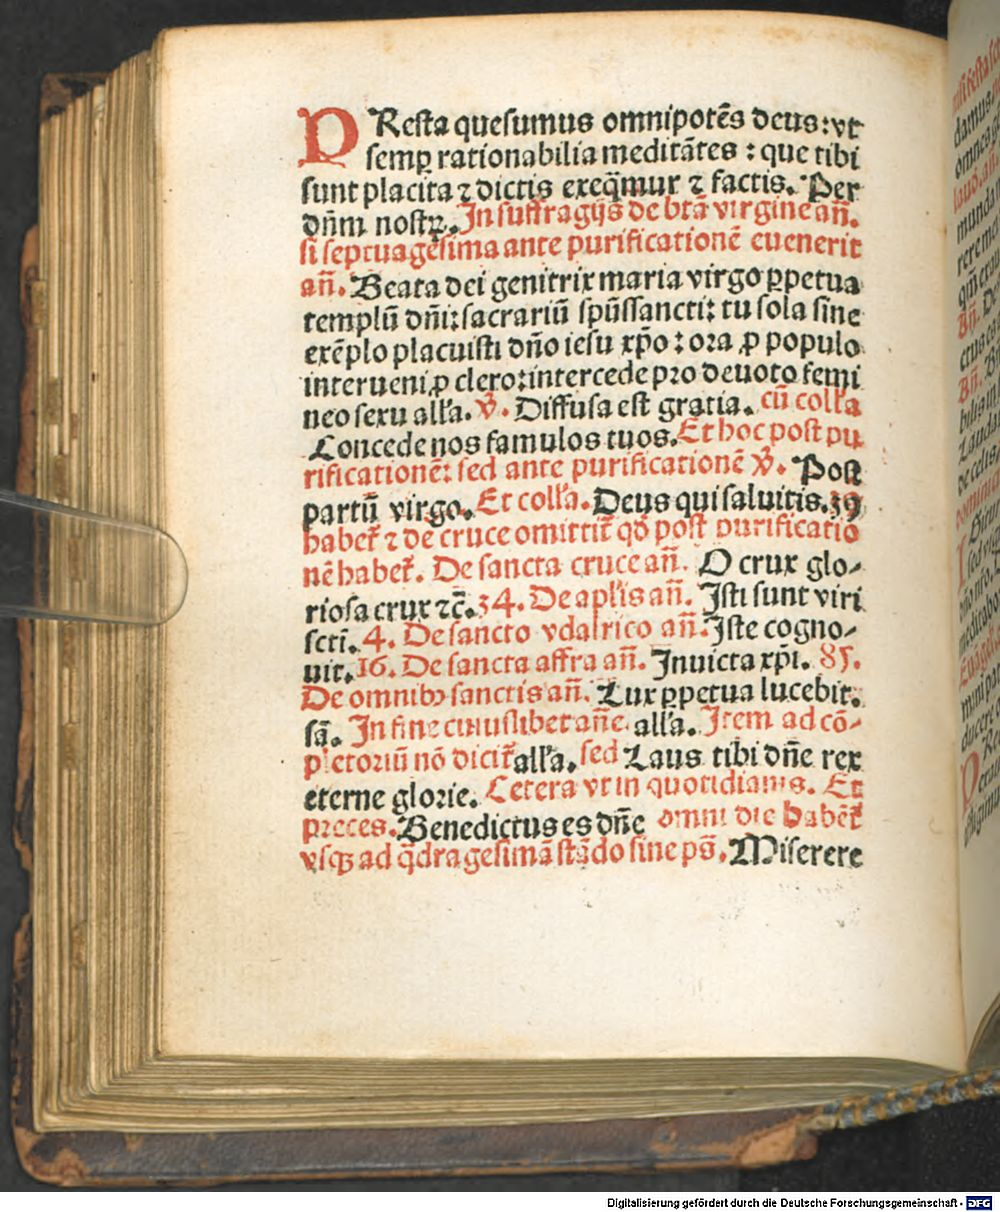 PResta quesumus omnipotēs deus: vt
semꝑ rationabilia meditātes : que tibi
sunt placita ⁊ dictis exeq̄mur ⁊ factis. Per
dn̄m nostrꝝ. In suffragijs de btā virgine an̄.
si septuagesima ante purificationē euenerit
an̄. Beata dei genitrix maria virgo ꝑpetua
templū dn̄i: sacrariū spūssancti: tu sola sine
exēplo placuisti dn̄o iesu xp̄o : ora ꝓ populo
interueni ꝓ clero: intercede pro deuoto femi
neo sexu all'a. v̄. Diffusa est gratia. cū coll'a
Concede nos famulos tuos. Et hoc post pu
rificationē: sed ante purificationē v̄. Post
partū virgo. Et coll'a. Deus qui salutis. 39
habet̄ ⁊ de cruce omittit̄ qd̄ post purificatio
nē habet̄. De sancta cruce an̄. O crux glo-
riosa crux ⁊c̄. 34. De apl'is an̄. Isti sunt viri
scti. 4. De sancto vdalrico an̄. Iste cogno-
uit. 16. De sancta affra an̄. Inuicta xp̄i. 85.
De omnibꝰ sanctis an̄. Lux ꝑpetua lucebit.
sā. In fine cuiuslibet an̄e. all'a. Item ad cō-
pletoriū nō dicit̄ all'a. sed Laus tibi dn̄e rex
eterne glorie. Cetera vt in quotidianis. Et
preces. Benedictus es dn̄e omni die habēt
vsqꝫ ad q̄dragesimā stādo sine ps̄. Miserere
Digitalisierung gefördert durch die Deutsche Forschungsgemeinschaft - DFG